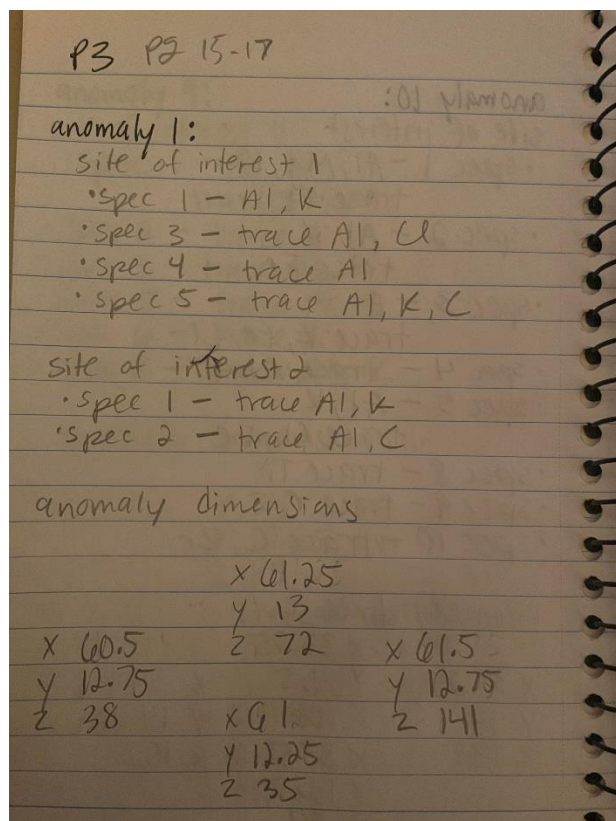 P3 PG 15-17
anomaly 1:
site of interest 1
• spec 1 - Al, K
• spec 3 - trace Al, Cl
• spec 4 - trace Al
• spec 5 - trace Al, K, C
site of interest 2
• spec 1 - trace Al, K
• spec 2 - trace Al, C
anomaly dimensions
x 61.25
y 13
z 72
x 60.5
y 12.75
z 38
x 61.5
y 12.75
z 141
x 61
y 12.25
z 35